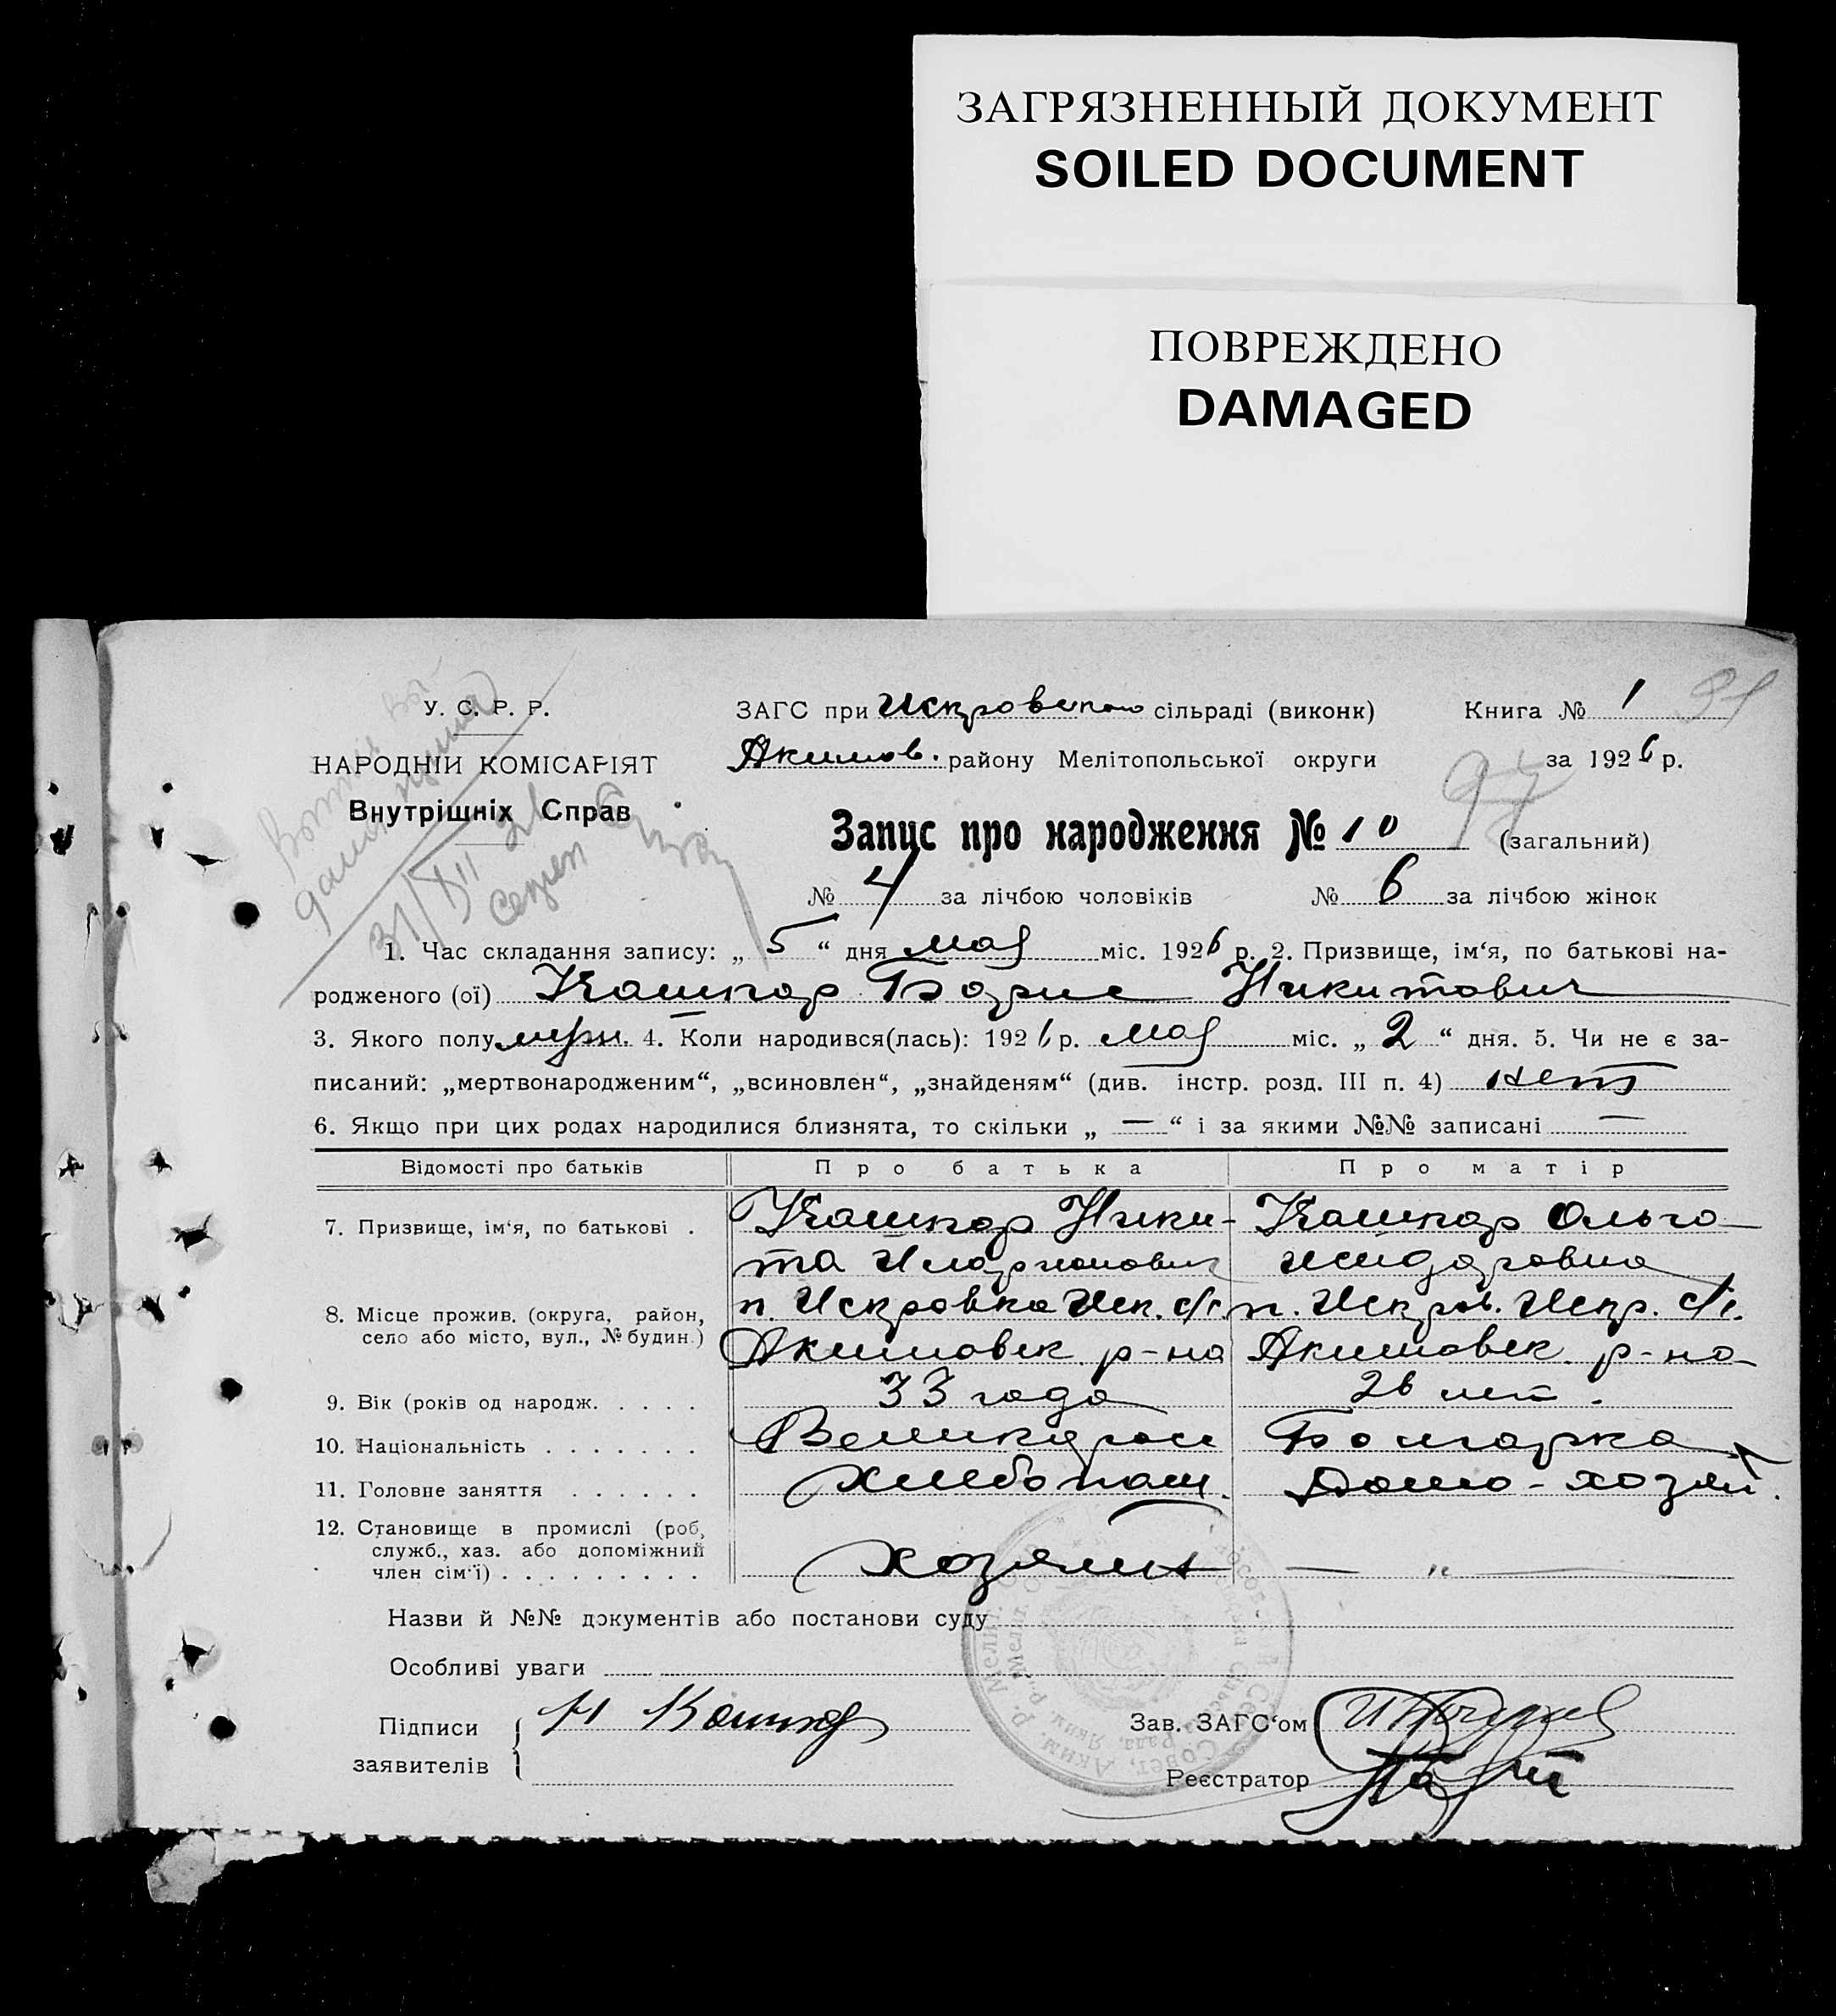 ЗАГРЯЗНЕННЫЙ ДОКУМЕНТ
SOILED DOCUMENT
ПОВРЕЖДЕНО
DAMAGED
У. С. Р. Р.
НАРОДНІЙ КОМІСАРІЯТ
Внутрішніх Справ
31/XII
ЗАГС при Искровском сільраді (виконк) Книга № 1 91
Акимов. району Мелітопольської округи за 1926 р.
97
Запис про народження № 10 (загальний)
№ 4 за лічбою чоловіків № 6 за лічбою жінок
1. Час складання запису: „ 5 “ дня мая міс. 1926 р. 2. Призвище, ім‘я, по батькові на-
родженого (ої) Кашкар Борис Никитович
3. Якого полу муж. 4. Коли народився(лась): 1926 р. мая міс. „ 2 “ дня. 5. Чи не є за-
писаний: „мертвонародженим“, „всиновлен“, „знайденям“ (див. інстр. розд. III п. 4) нет
6. Якщо при цих родах народилися близнята, то скільки „ — “ і за якими №№ записані —
Відомості про батьків Про батька Про матір
7. Призвище, ім‘я, по батькові . Кашкар Ники- Кашкар Ольга
та Иларионович Исидоровна
8. Місце прожив. (округа, район, п. Искровка Иск. с/с п. Искров. Искр. с/с.
село або місто, вул., № будин.) Акимовск. р-на Акимовск. р-на
9. Вік (років од народж. . . . . 33 года 26 лет.
10. Національність . . . . . . . Великоросс Болгарка
11. Головне заняття . . . . . . Хлебопаш. Домо-хозяй.
12. Становище в промислі (роб,
служб., хаз. або допоміжний
член сім‘ї) . . . . . . . . . Хозяин — „ —
Назви й №№ документів або постанови суду
Особливі уваги
Підписи Н Кашкар Зав. ЗАГС‘ом
заявителів Реєстратор